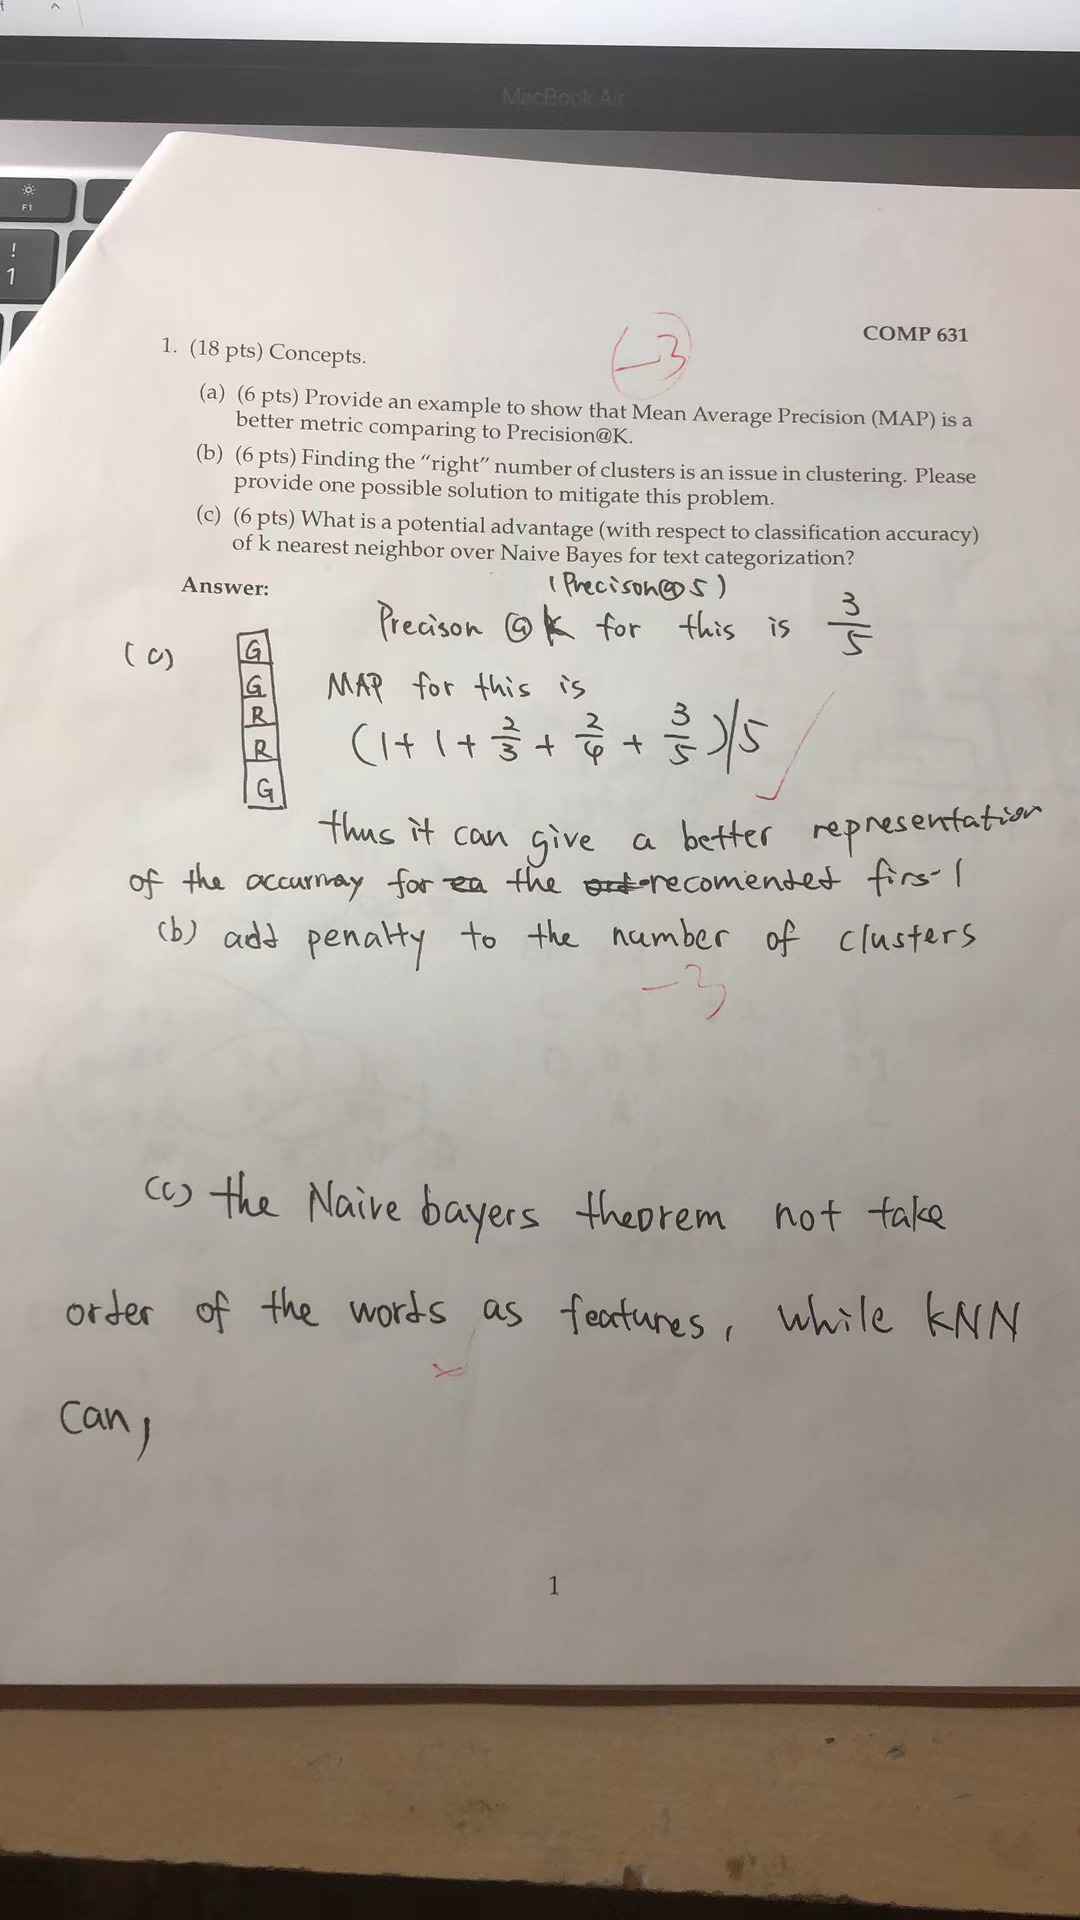 MacBook Air
F1
!
1
COMP 631
-3
1. (18 pts) Concepts.
(a) (6 pts) Provide an example to show that Mean Average Precision (MAP) is a
better metric comparing to Precision@K.
(b) (6 pts) Finding the “right” number of clusters is an issue in clustering. Please
provide one possible solution to mitigate this problem.
(c) (6 pts) What is a potential advantage (with respect to classification accuracy)
of k nearest neighbor over Naive Bayes for text categorization?
Answer:
(Precison@5)
Precison @k for this is 3/5
(c)
G
G
R
R
G
MAP for this is
(1+1+2/3+2/4+3/5)/5
thus it can give a better representation
of the for the recomented
(b) add penalty to the number of clusters
-3
(c) the Naive bayers theorem not take
order of the words as features, while kNN
can,
1